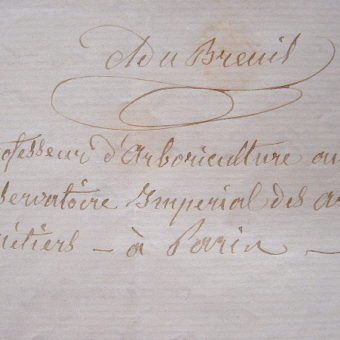 ADu Breuil
ofesseur d'Arboriculture au
servatoire Imperial des ar
étiers — à Paris —